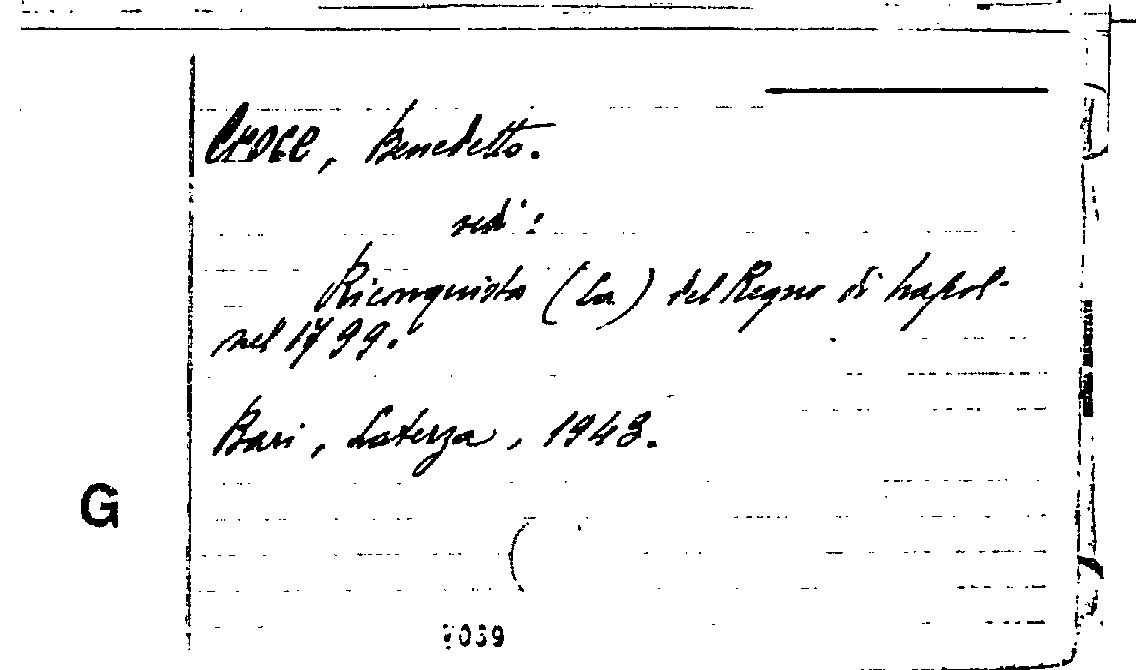 Croce, Benedetto.
vedi:
Riconquista (La) del Regno di Napoli
nel 1799.
Bari, Laterza, 1943.
G